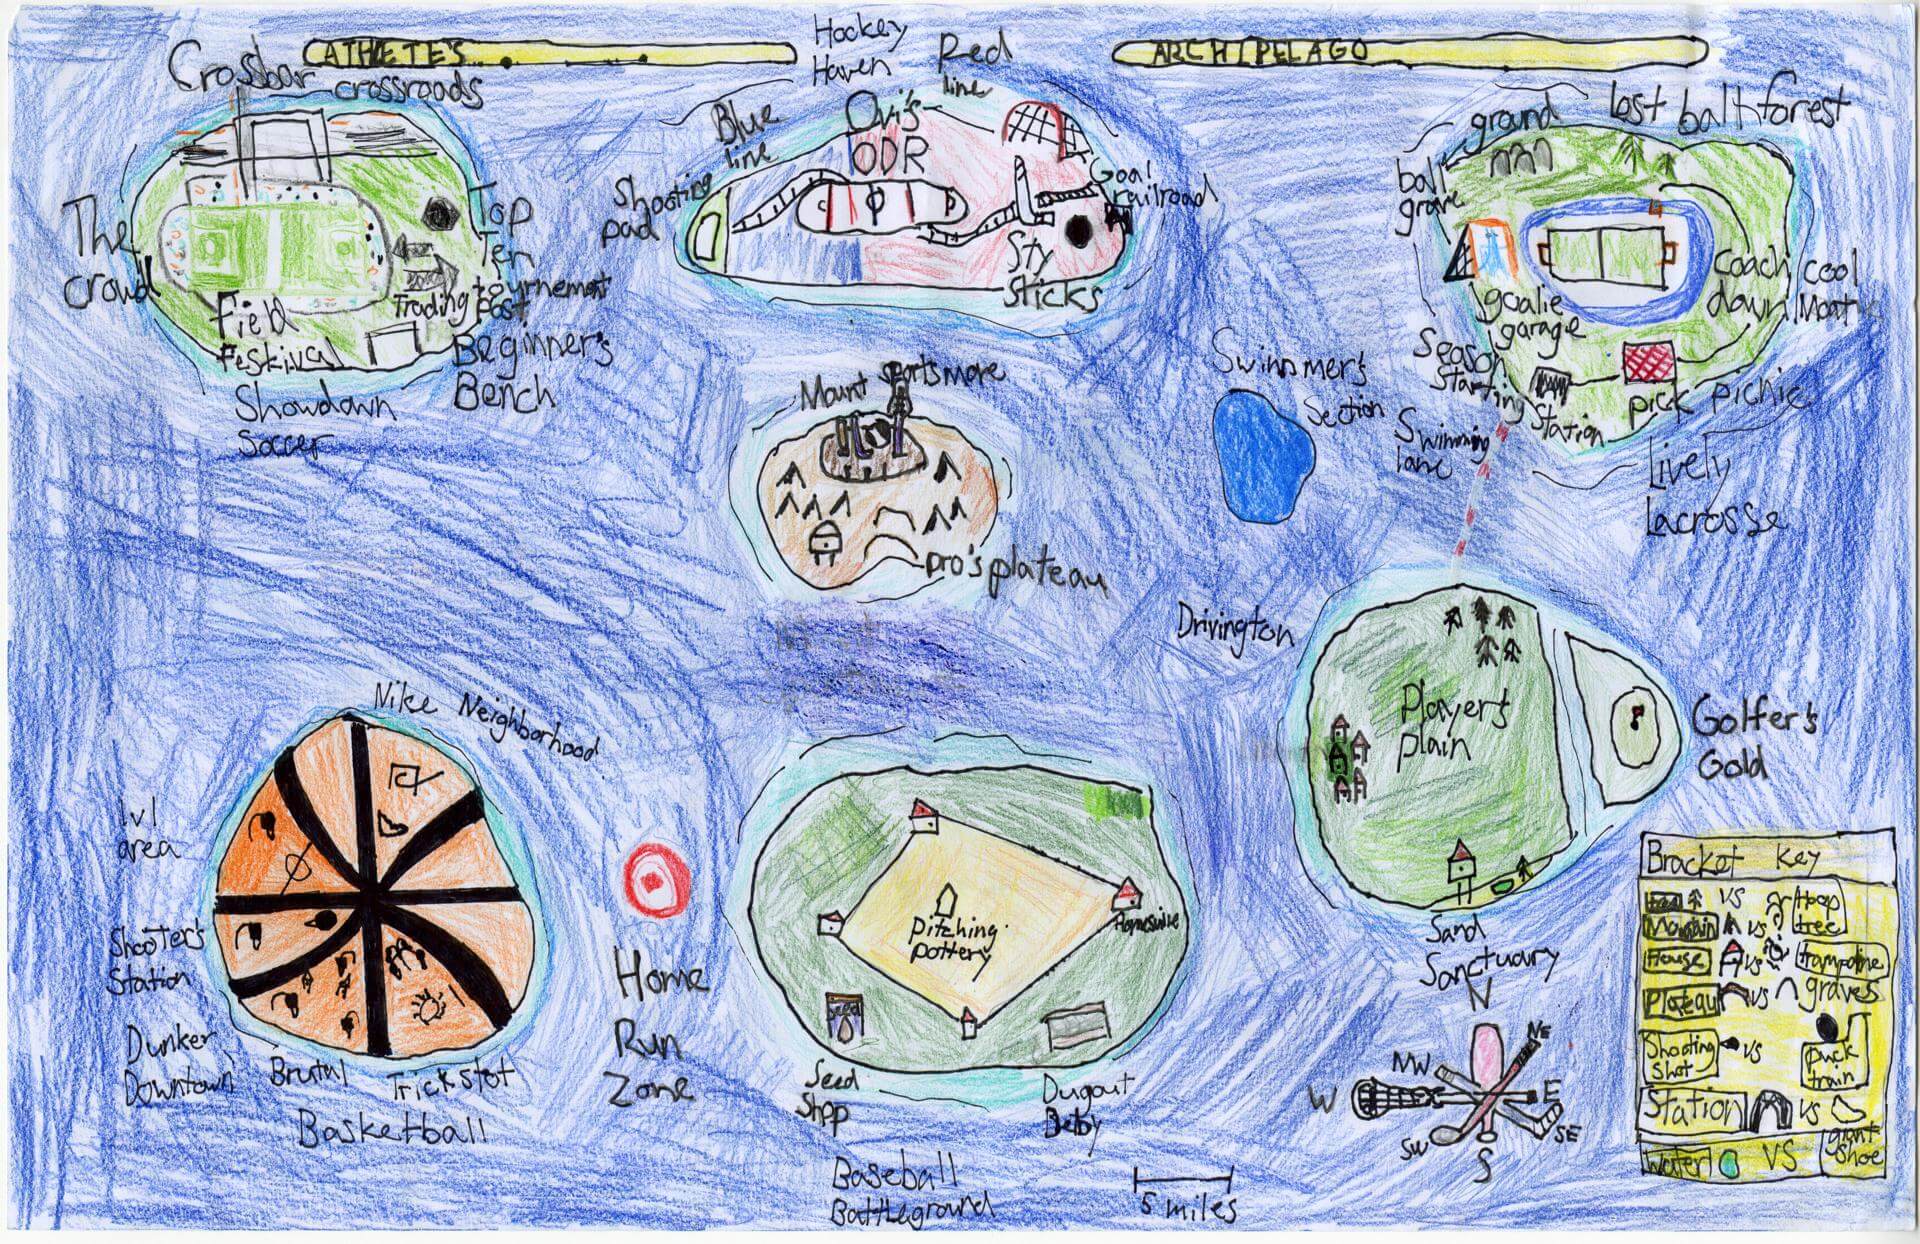 ATHLETE'S
ARCHIPELAGO
Crossbar crossroads
The
crowd
Top
Ten
tournement
Trading post
Field
Festival
Beginner's
Bench
Showdown
Soccer
Hockey
Haven
Red
line
Blue
line
Ovi's
ODR
Shooting
pad
Goal
railroad
Sty
Sticks
ground
ball
grave
Lost ball forest
goalie
garage
Coach cool
down Moat
Season
Starting
Station
pick picnic
Lively
Lacrosse
Swimming
lane
Swimmer's
Section
Mount Sportsmore
pro's plateau
Drivington
Player's
plain
Golfer's
Gold
Sand
Sanctuary
Nike Neighborhood
lvl
area
Shooter's
Station
Dunker
Downtown
Brutal
Trickslot
Basketball
Home
Run
Zone
Pitching
pottery
Homesville
Seed
Seed
Shop
Dugout
Derby
Baseball
Battleground
5 miles
N
NE
E
SE
S
SW
W
NW
Bracket Key
VS Hoop
tree
vs
House vs trampoline
Plateau vs graves
Shooting
shot vs puck
train
Station vs giant
shoe
Water VS